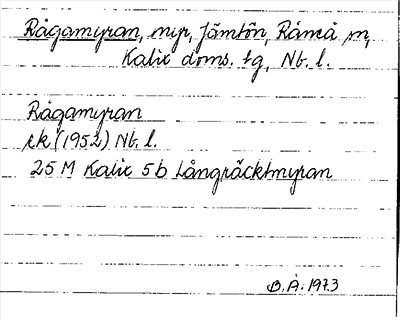 Rågamyran, myr, Jämtön, Råneå sn,
Kalix doms. tg, Nb. l.
Rågamyran
ek (1952) Nb. l.
25 M Kalix 5b Långräcktmyran
B.Å. 1973